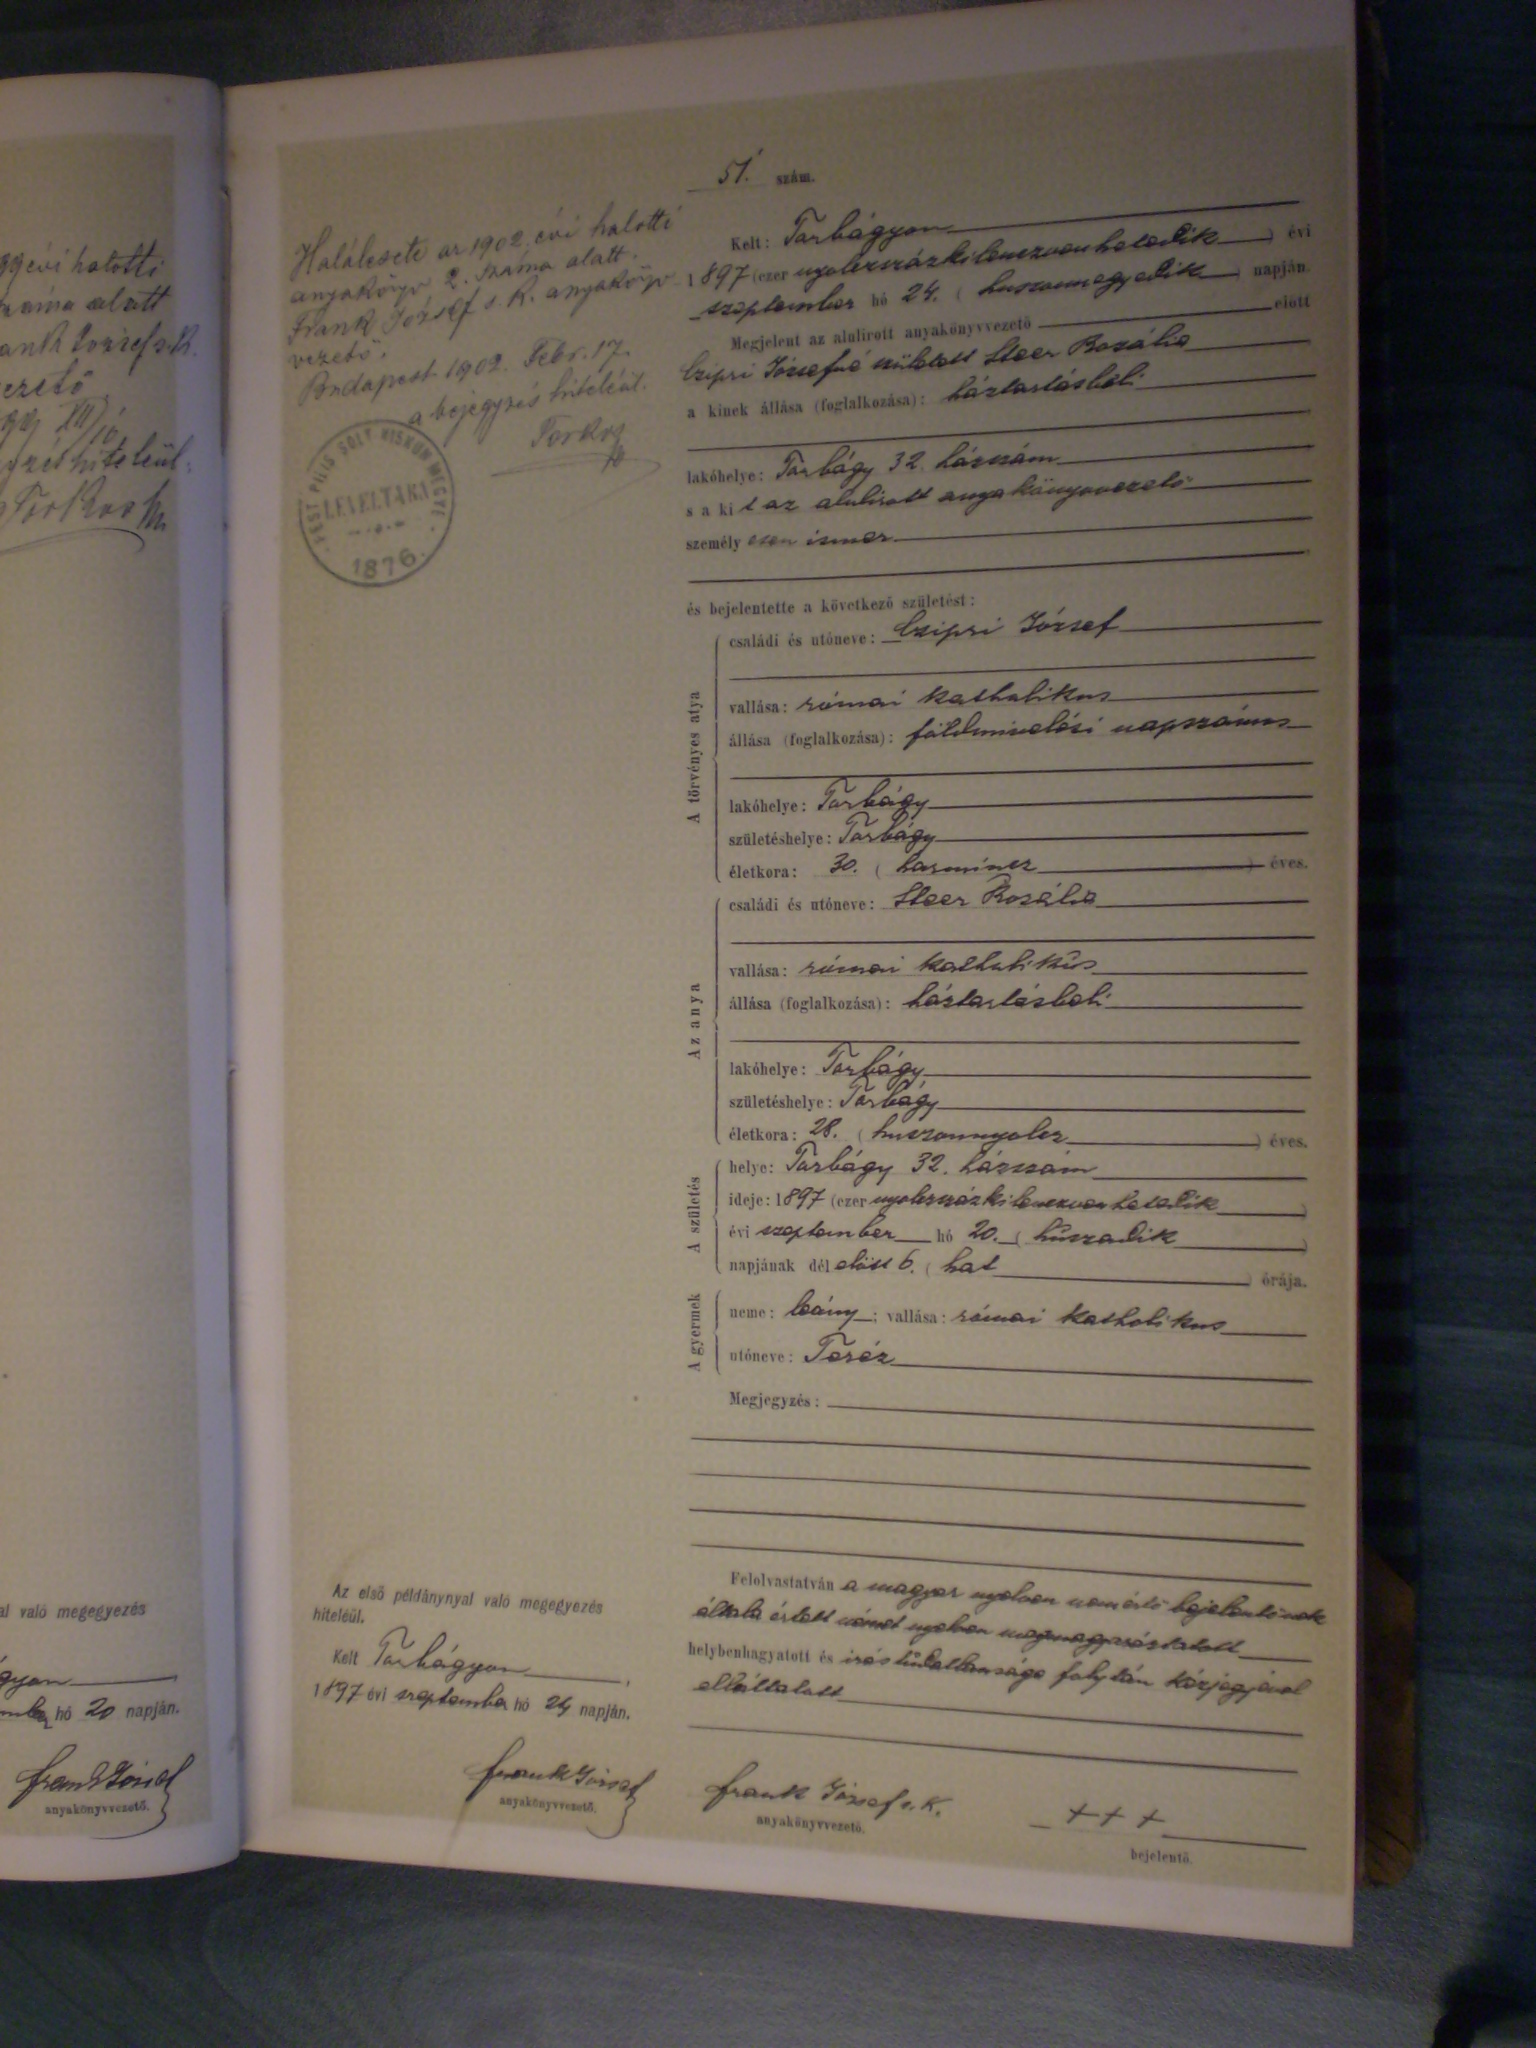 99 évi halotti
száma alatt
Frank József s. k.
vezető
XII
hiteléül.
51. szám.
Halálesete az 1902. évi halotti
anyakönyv 2. száma alatt.
Frank József s. k. anyakönyv
vezető.
Budapest 1902. Febr. 17.
a bejegyzés hiteléül.
PEST PILIS SOLT KISKUN MEGYE
LEVELTÁRA
1876.
Kelt: Torbágyon
1897 (ezer nyolczszázkilenczvenhetedik) évi
szeptember hó 24. (huszonnegyedik) napján.
Megjelent az alulirott anyakönyvvezető előtt
Czipri Józsefné született Steer Rozália
a kinek állása (foglalkozása): háztartásbeli
lakóhelye: Torbágy 32. házszám
s a kit az alulirott anyakönyvvezető
személyesen ismer
és bejelentette a következő születést:
A törvényes atya
családi és utóneve: Czipri József
vallása: római katholikus
állása (foglalkozása): földmivelési napszámos
lakóhelye: Torbágy
születéshelye: Torbágy
életkora: 30. (harmincz) éves.
Az anya
családi és utóneve: Steer Rozália
vallása: római katholikus
állása (foglalkozása): háztartásbeli
lakóhelye: Torbágy
születéshelye: Torbágy
életkora: 28. (huszonnyolcz) éves.
A születés
helye: Torbágy 32. házszám
ideje: 1897 (ezer nyolczszázkilenczvenhetedik)
évi szeptember hó 20. (húszadik)
napjának dél előtt 6. (hat) órája.
A gyermek
neme: leány; vallása: római katholikus
utóneve: Teréz
Megjegyzés:
Felolvastatván a magyar nyelven nem értő bejelentőnek
általa értett német nyelven megmagyaráztatott
helybenhagyatott és irástudatlansága folytán kézjegyével
elláttatott
Frank József s. k.
anyakönyvvezető.
+ + +
bejelentő.
Az első példánynyal való megegyezés
hiteléül.
Kelt Torbágyon,
1897 évi szeptember hó 24 napján.
Frank József
anyakönyvvezető.
való megegyezés
hó 20 napján.
Frank József
anyakönyvvezető.